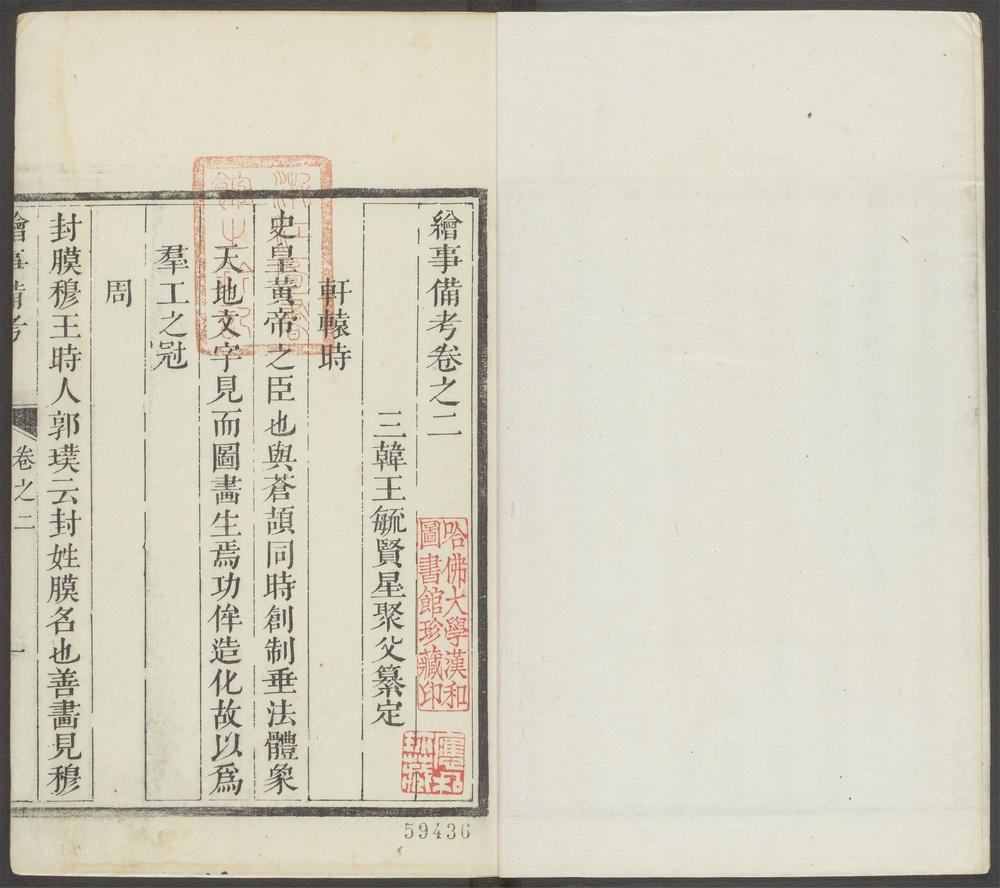 繪事備考卷之二
三韓王毓賢星聚父纂定
軒轅時
史皇黃帝之臣也與蒼頡同時創制垂法體象
天地文字見而圖畵生焉功侔造化故以爲
羣工之冠
周
封膜穆王時人郭璞云封姓膜名也善畵見穆
繪事備考
卷之二
一
哈佛大學漢和
圖書館珍藏印
59436